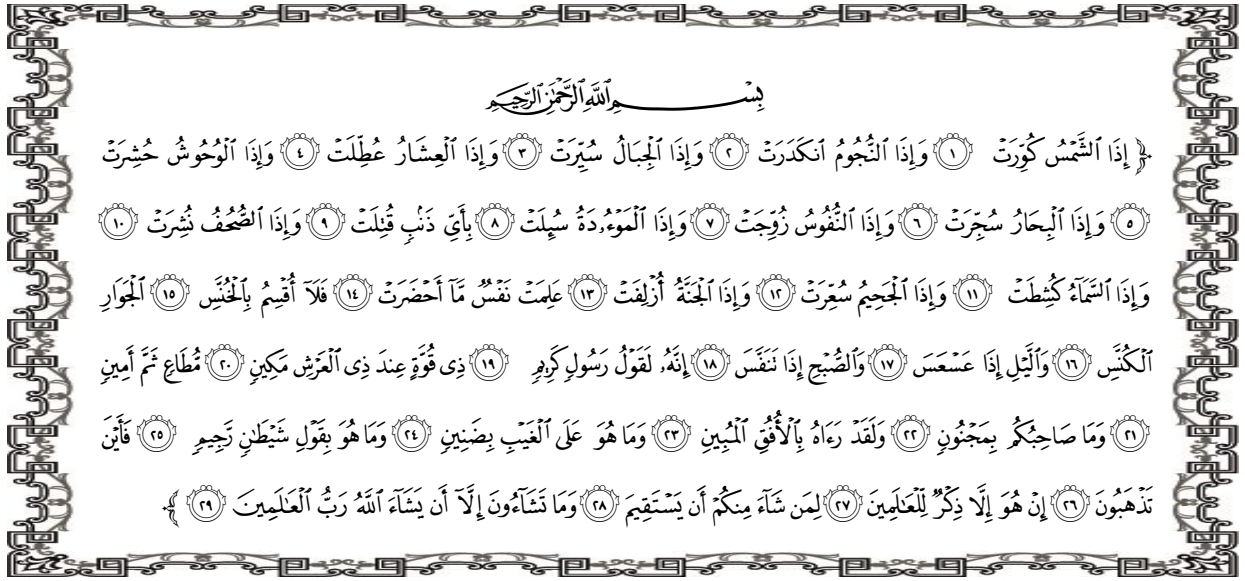 بِسْمِ ٱللَّهِ ٱلرَّحْمَٰنِ ٱلرَّحِيمِ
﴿ إِذَا ٱلشَّمْسُ كُوِّرَتْ ١ وَإِذَا ٱلنُّجُومُ ٱنكَدَرَتْ ٢ وَإِذَا ٱلْجِبَالُ سُيِّرَتْ ٣ وَإِذَا ٱلْعِشَارُ عُطِّلَتْ ٤ وَإِذَا ٱلْوُحُوشُ حُشِرَتْ
٥ وَإِذَا ٱلْبِحَارُ سُجِّرَتْ ٦ وَإِذَا ٱلنُّفُوسُ زُوِّجَتْ ٧ وَإِذَا ٱلْمَوْءُۥدَةُ سُئِلَتْ ٨ بِأَىِّ ذَنۢبٍ قُتِلَتْ ٩ وَإِذَا ٱلصُّحُفُ نُشِرَتْ ١٠
وَإِذَا ٱلسَّمَآءُ كُشِطَتْ ١١ وَإِذَا ٱلْجَحِيمُ سُعِّرَتْ ١٢ وَإِذَا ٱلْجَنَّةُ أُزْلِفَتْ ١٣ عَلِمَتْ نَفْسٌ مَّآ أَحْضَرَتْ ١٤ فَلَآ أُقْسِمُ بِٱلْخُنَّسِ ١٥ ٱلْجَوَارِ
ٱلْكُنَّسِ ١٦ وَٱلَّيْلِ إِذَا عَسْعَسَ ١٧ وَٱلصُّبْحِ إِذَا تَنَفَّسَ ١٨ إِنَّهُۥ لَقَوْلُ رَسُولٍ كَرِيمٍ ١٩ ذِى قُوَّةٍ عِندَ ذِى ٱلْعَرْشِ مَكِينٍ ٢٠ مُّطَاعٍ ثَمَّ أَمِينٍ
٢١ وَمَا صَاحِبُكُم بِمَجْنُونٍ ٢٢ وَلَقَدْ رَءَاهُ بِٱلْأُفُقِ ٱلْمُبِينِ ٢٣ وَمَا هُوَ عَلَى ٱلْغَيْبِ بِضَنِينٍ ٢٤ وَمَا هُوَ بِقَوْلِ شَيْطَٰنٍ رَّجِيمٍ ٢٥ فَأَيْنَ
تَذْهَبُونَ ٢٦ إِنْ هُوَ إِلَّا ذِكْرٌ لِّلْعَٰلَمِينَ ٢٧ لِمَن شَآءَ مِنكُمْ أَن يَسْتَقِيمَ ٢٨ وَمَا تَشَآءُونَ إِلَّآ أَن يَشَآءَ ٱللَّهُ رَبُّ ٱلْعَٰلَمِينَ ٢٩ ﴾